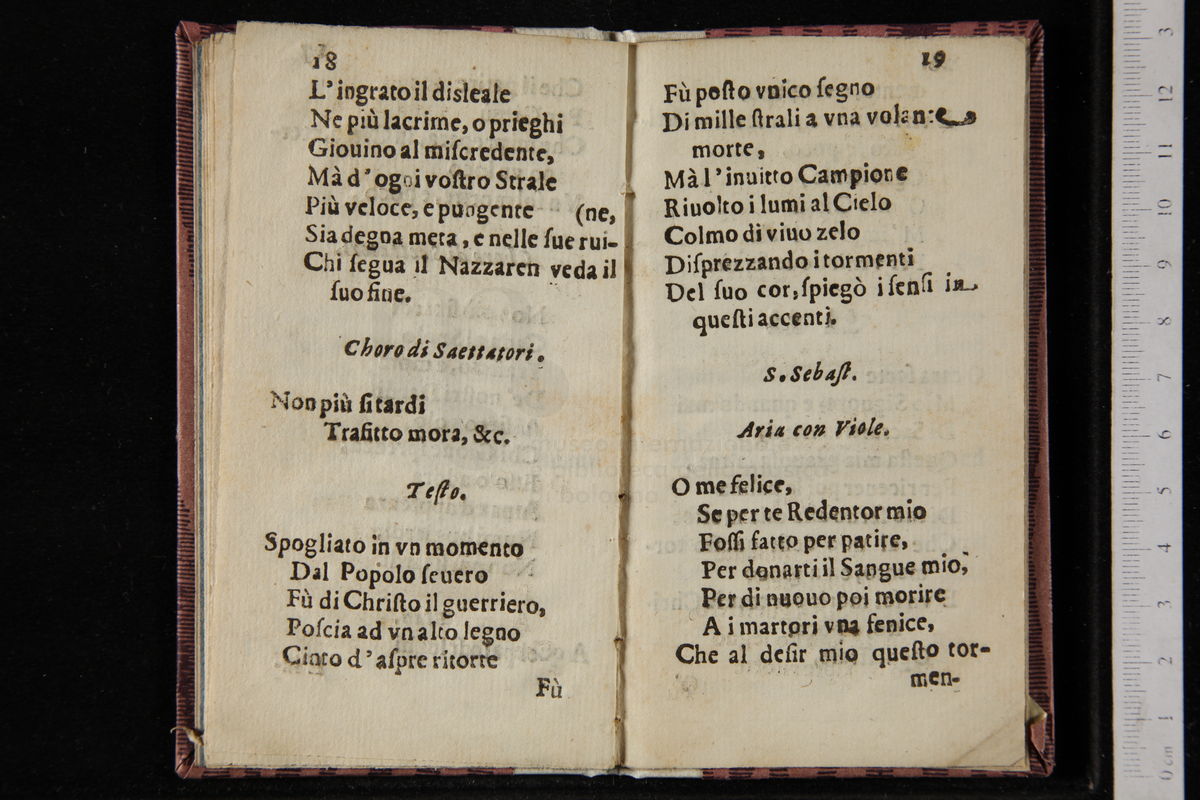 18
L'ingrato il disleale
Ne più lacrime, o prieghi
Giouino al miſcredente,
Mà d'ogni voſtro Strale
Più veloce, e pungente (ne,
Sia degna meta, e nelle ſue rui-
Chi ſegua il Nazzaren veda il
ſuo fine.
Choro di Saettatori.
Non più ſi tardi
Trafitto mora, &c.
Teſto.
Spogliato in vn momento
Dal Popolo ſeuero
Fù di Chriſto il guerriero,
Poſcia ad vn alto legno
Cinto d'aſpre ritorte
Fù
19
Fù poſto vnico ſegno
Di mille ſtrali a vna volante
morte,
Mà l'inuitto Campione
Riuolto i lumi al Cielo
Colmo di viuo zelo
Diſprezzando i tormenti
Del ſuo cor, ſpiegò i ſenſi in
queſti accenti.
S. Sebaſt.
Aria con Viole.
O me felice,
Se per te Redentor mio
Foſſi fatto per patire,
Per donarti il Sangue mio,
Per di nuouo poi morire
A i martori vna fenice,
Che al deſir mio queſto tor-
men-